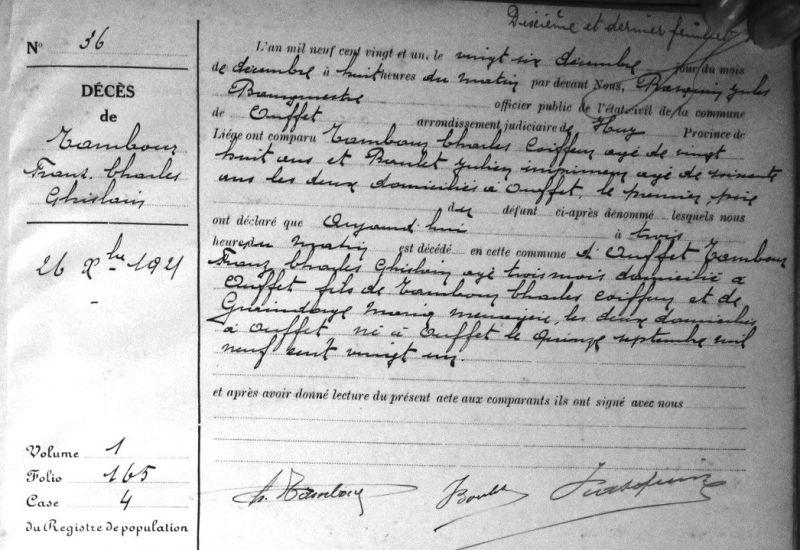 Dixième et dernier feuillet
N° 36
DÉCÈS
de
Tambour
Franz Charles
Ghislain
26 Xbre 1921
Volume 1
Folio 165
Case 4
du Registre de population
L'an mil neuf cent vingt et un, le vingt six décembre jour du mois
de décembre à huit heures du matin par devant Nous, Jules
Bourgmestre officier public de l'état-civil de la commune
de Ouffet arrondissement judiciaire de Huy Province de
Liége ont comparu Tambour Charles Coiffeur agé de vingt
huit ans et Boulet Julien imprimeur agé de soixante
ans les deux domiciliés à Ouffet, le premier, père
du défunt ci-après dénommé lesquels nous
ont déclaré que Aujourd'hui à trois
heures du matin est décédé en cette commune d'Ouffet Tambour
Franz Charles Ghislain agé trois mois domicilié à
Ouffet fils de Tambour Charles coiffeur et de
Maria ménagère, les deux domiciliés
à Ouffet né à Ouffet le quinze septembre mil
neuf cent vingt un.
et après avoir donné lecture du présent acte aux comparants ils ont signé avec nous
Ch. Tambour Boulet